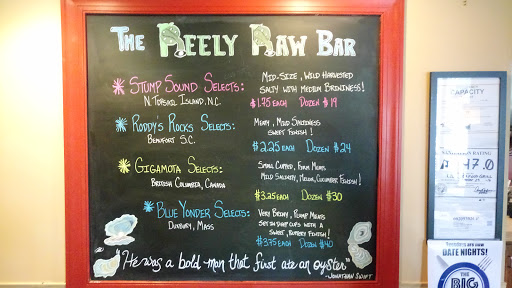 THE REELY RAW BAR
STUMP SOUND SELECTS:
N. TOPSAIL ISLAND, N.C.
MID-SIZE, WILD HARVESTED
SALTY WITH MEDIUM BRININESS!
$1.75 EACH DOZEN $19
RODDY'S ROCKS SELECTS:
BEAUFORT S.C.
MEATY, MILD SALTINESS
SWEET FINISH!
$2.25 EACH DOZEN $24
GIGAMOTA SELECTS:
BRITISH COLUMBIA, CANADA
SMALL CUPPED, FIRM MEATS
MILD SALINITY, MELON, CUCUMBER FINISH!
$3.25 EACH DOZEN $30
BLUE YONDER SELECTS:
DUXBURY, MASS
VERY BRINY, PLUMP MEATS
SET IN DEEP CUPS WITH A
SWEET, BUTTERY FINISH!
$3.75 EACH DOZEN $40
"HE was a bold man that first ate an oyster"
-JONATHAN SWIFT
CAPACITY
SANITATION RATING
97.0
DATE NIGHTS!
THE
BIG